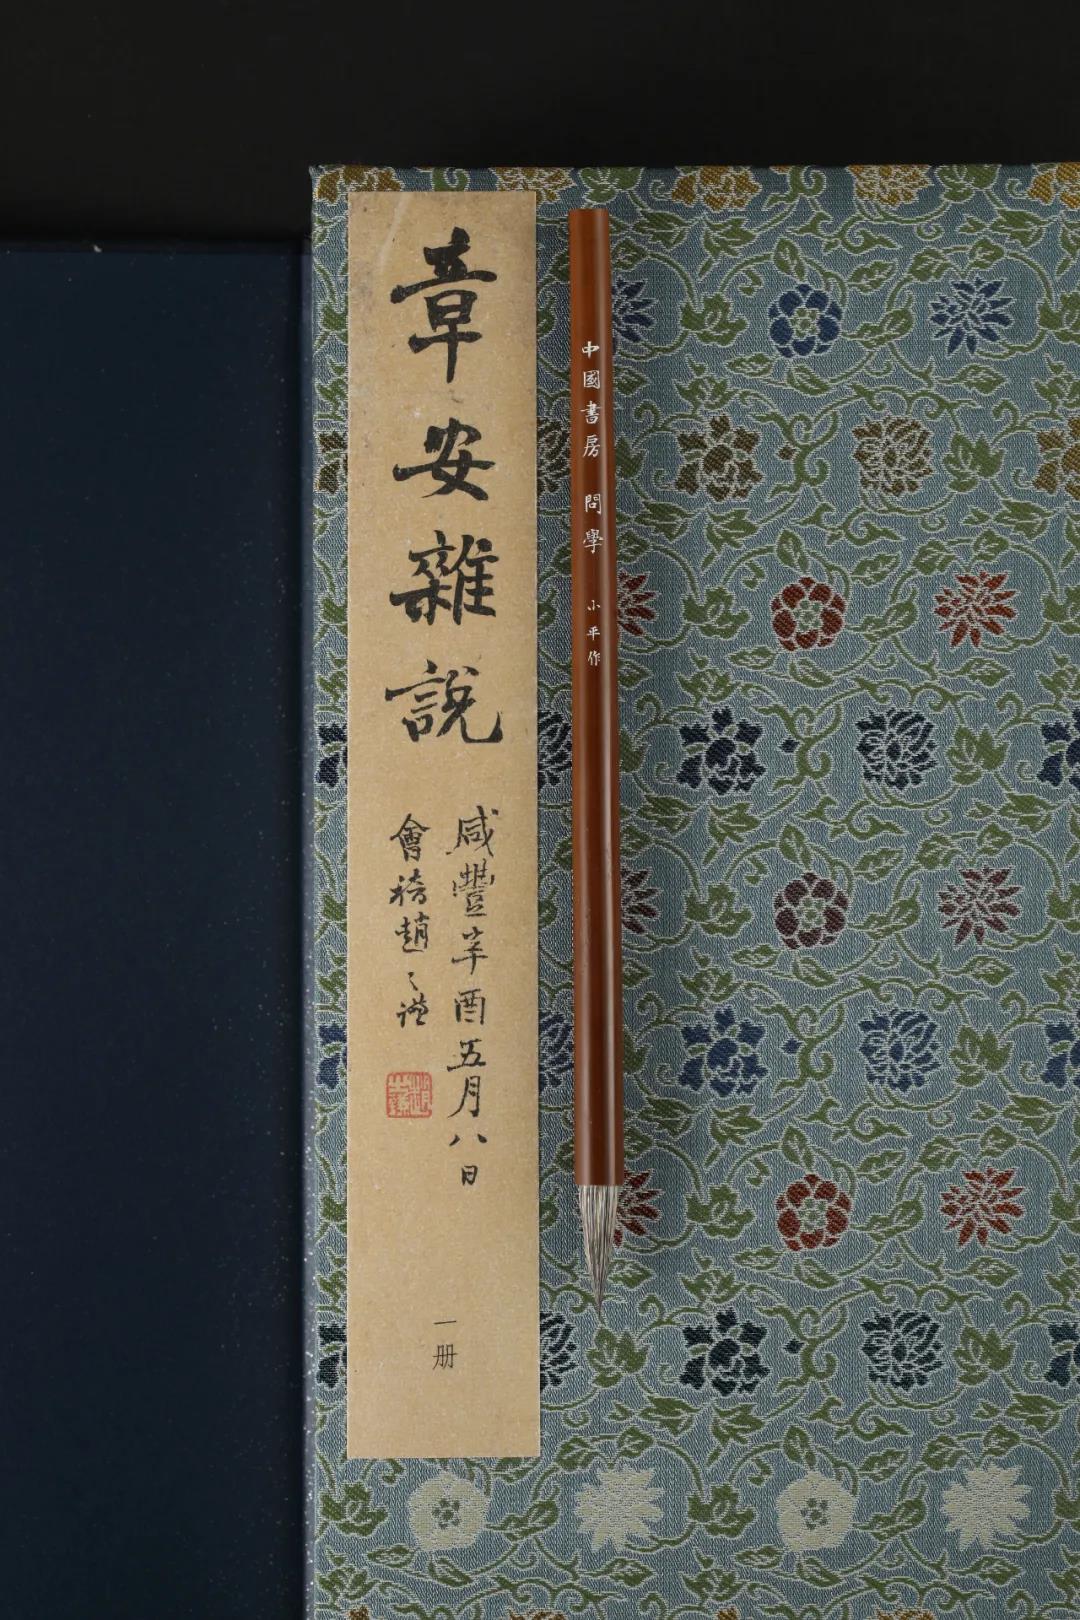 章安雜說
咸豐辛酉五月八日
會稽趙之謙
一册
中國書房 問學 小平作